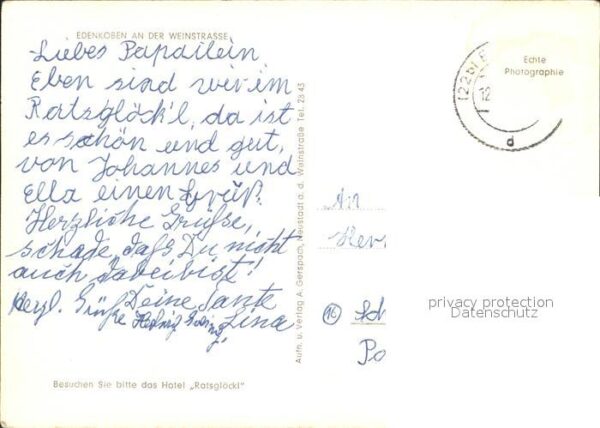 EDENKOBEN AN DER WEINSTRASSE
Liebes Papailein,
Eben sind wir im
Ratsglöck'l, da ist
es schön und gut,
von Johannes und
Ella einen Gruß.
Herzliche Grüße,
schade, daß Du nicht
auch dabei bist!
Deine Tante
Lina
Herzl. Grüße
Besuchen Sie bitte das Hotel „Ratsglöckl"
Aufn. u. Verlag A. Gerspach, Neustadt a. d. Weinstraße Tel. 28 43
Echte
Photographie
(22b)
12
d
An
Her
(16)
privacy protection
Datenschutz